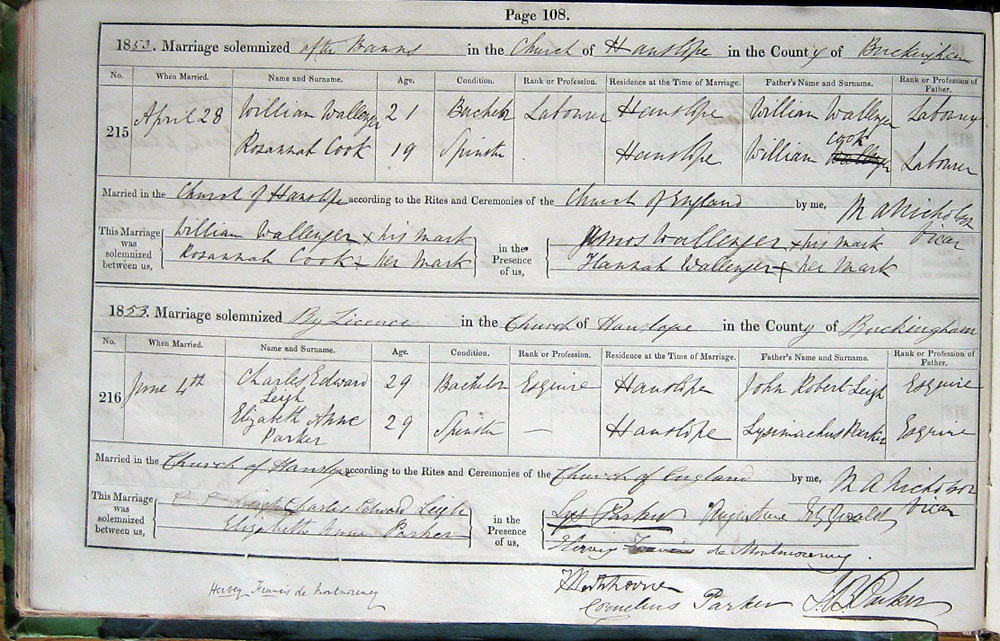 Page 108.
1853. Marriage solemnized after Banns in the Church of Hanslope in the County of Buckingham
No. When Married. Name and Surname. Age. Condition. Rank or Profession. Residence at the Time of Marriage. Father's Name and Surname. Rank or Profession of Father.
215 April 28 William Wallenger 21 Bachelor Labourer Hanslope William Wallenger Labourer
Rosannah Cook 19 Spinster . Hanslope William Cook Wallenger Labourer
Married in the Church of Hanslope according to the Rites and Ceremonies of the Church of England by me, M A Nicholson Vicar
This Marriage was solemnized between us, William Wallenger x his mark in the Presence of us, Amos Wallenger x his mark
Rosannah Cook x her mark Hannah Wallenger x her mark
1853. Marriage solemnized By Licence in the Church of Hanslope in the County of Buckingham
No. When Married. Name and Surname. Age. Condition. Rank or Profession. Residence at the Time of Marriage. Father's Name and Surname. Rank or Profession of Father.
216 June 4th Charles Edward Leigh 29 Bachelor Esquire Hanslope John Robert Leigh Esquire
Elizabeth Anne Parker 29 Spinster — Hanslope Lysimachus Parker Esquire
Married in the Church of Hanslope according to the Rites and Ceremonies of the Church of England by me, M A Nicholson Vicar
This Marriage was solemnized between us, Charles Edward Leigh in the Presence of us, Lys Parker
Elizabeth Anne Parker Hervey Francis de Montmorency.
Hervey Francis de Montmorency
Cornelius Parker